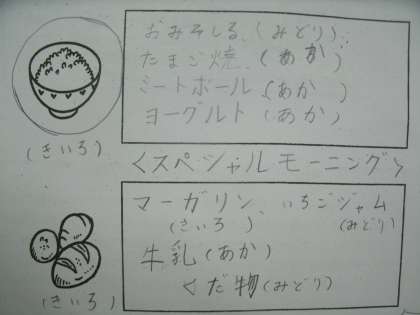 おみそしる、(みどり)
たまご焼、(あか)
ミートボール、(あか)
ヨーグルト(あか)
(きいろ)
<スペシャルモーニング>
マーガリン、いちごジャム
(きいろ) (みどり)
牛乳(あか)
くだ物(みどり)
(きいろ)